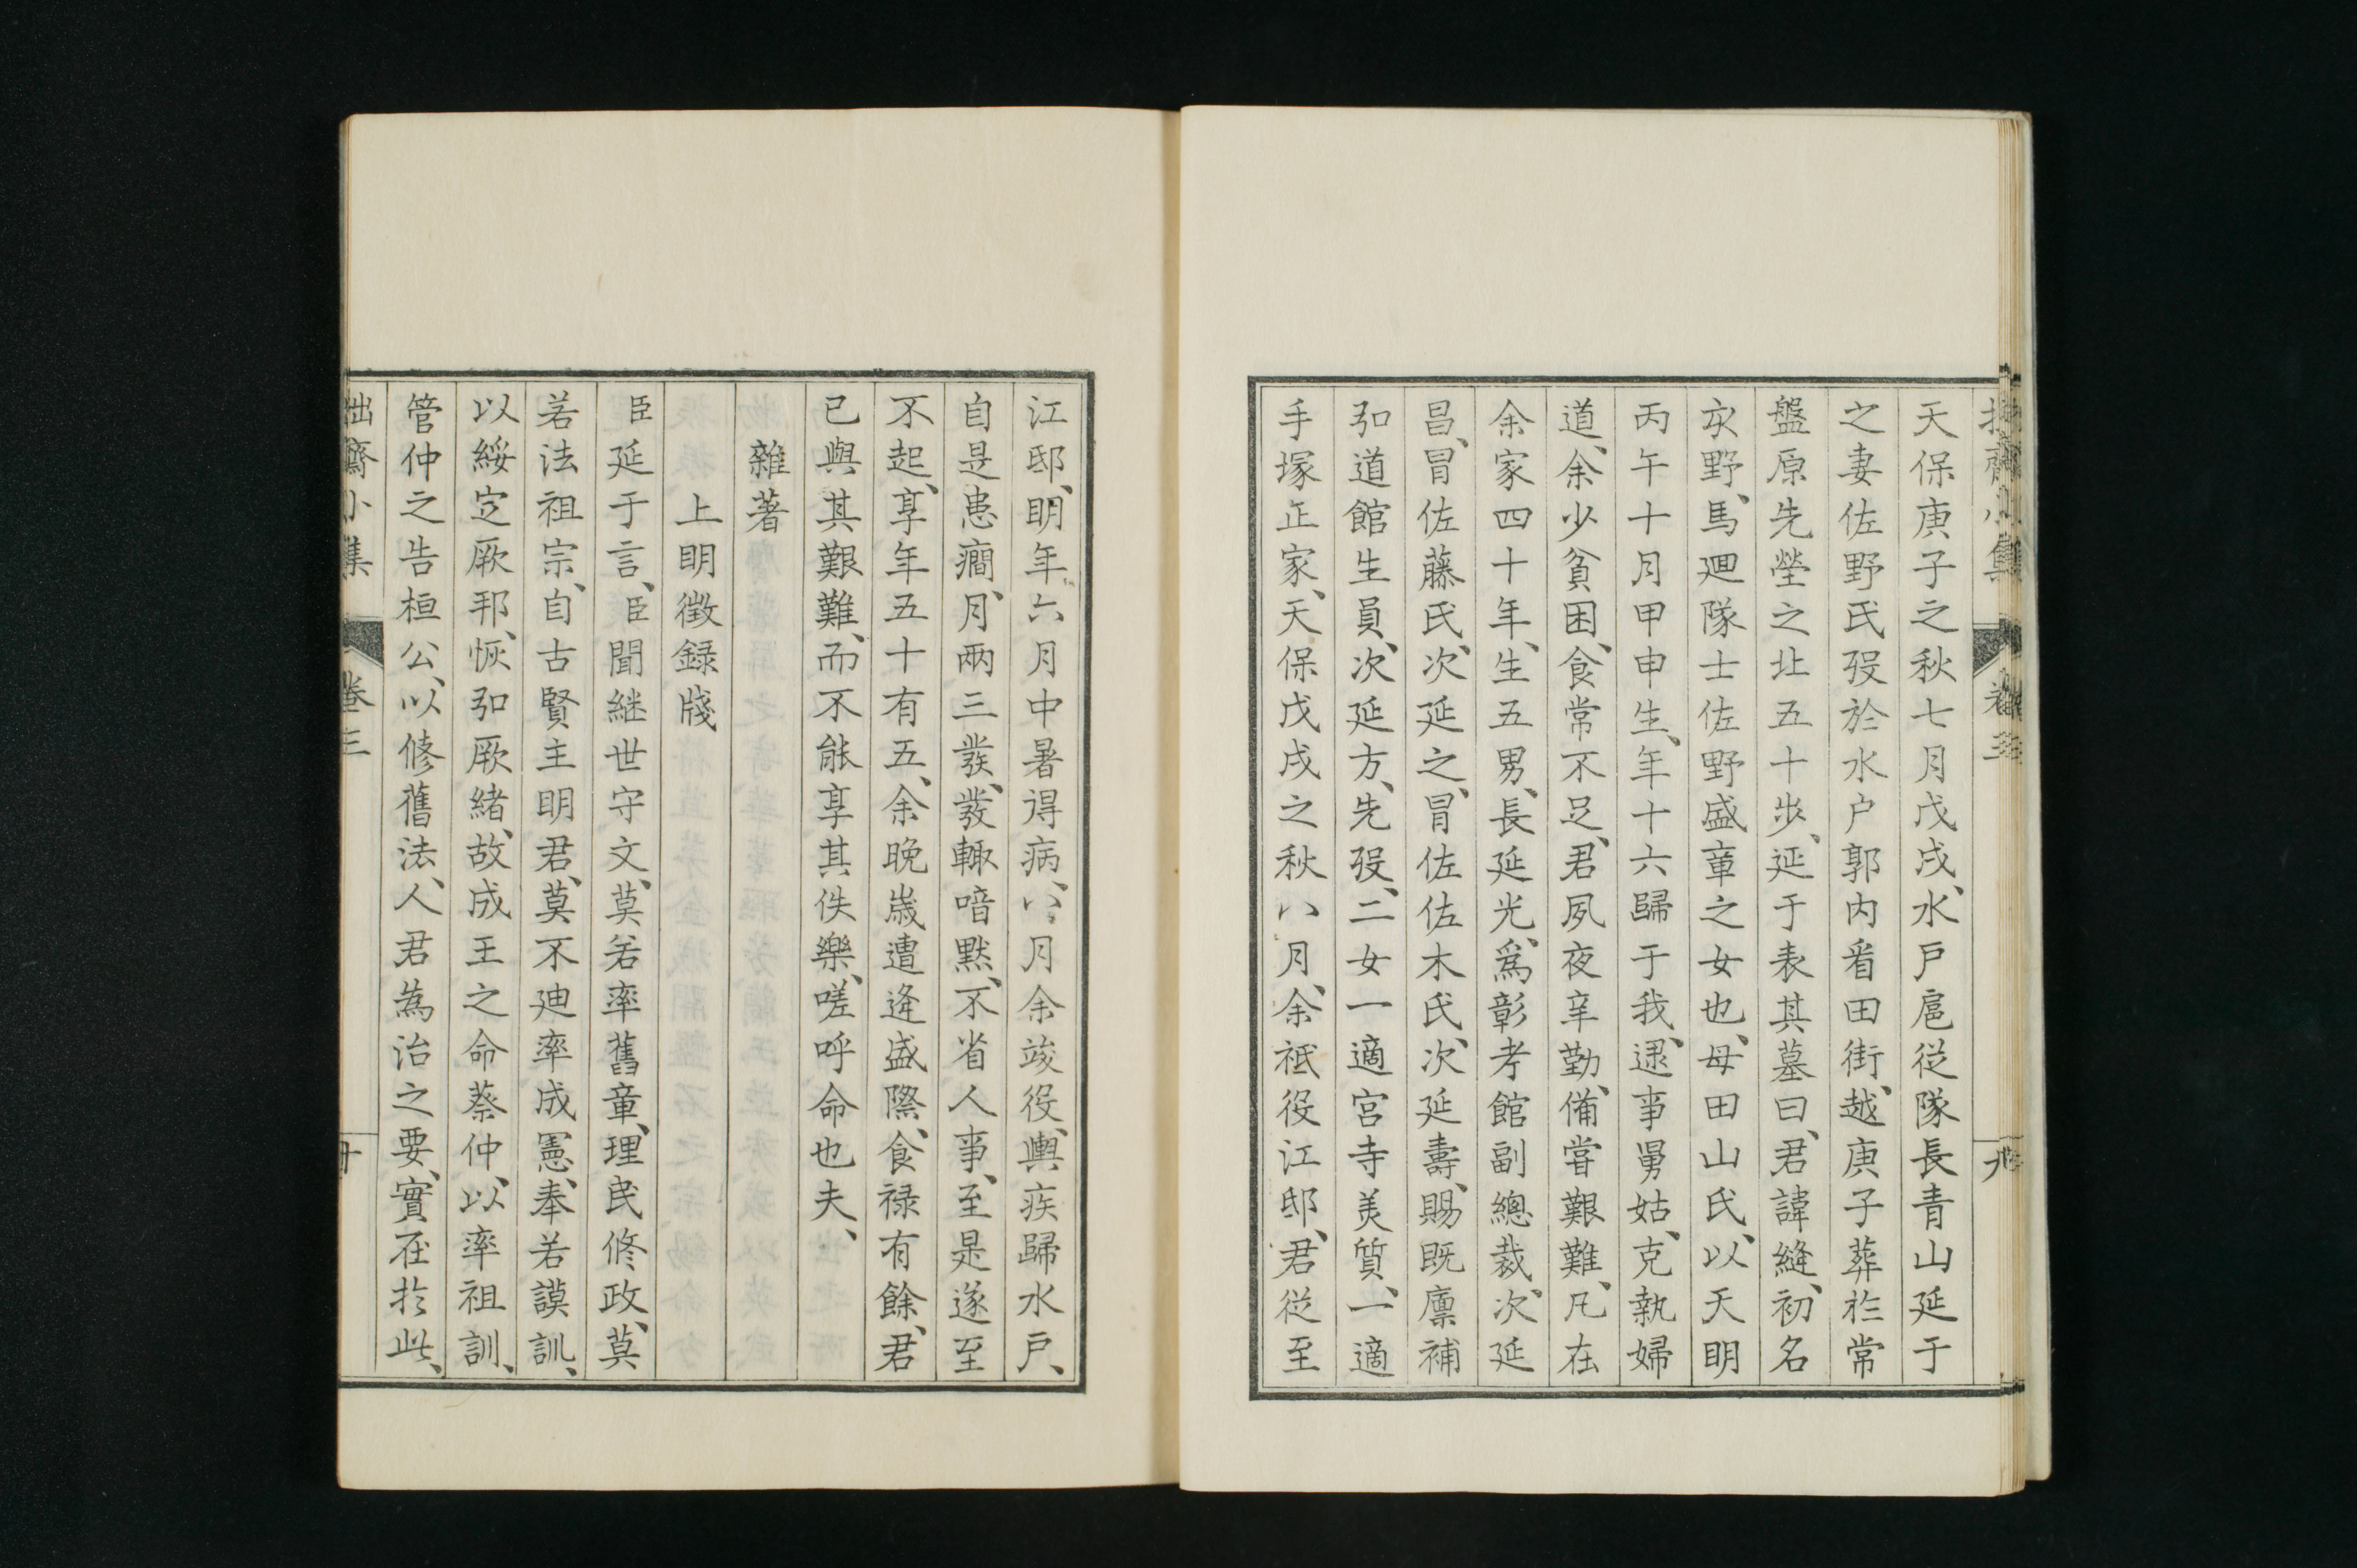 拙齋小集 卷三 九
天保庚子之秋七月戊戌、水戶扈從隊長青山延于
之妻佐野氏歿於水户郭内㸔田街、越庚子葬於常
盤原先塋之北五十步、延于表其墓曰、君諱縫、初名
亥野、馬廻隊士佐野盛章之女也、母田山氏、以天明
丙午十月甲申生、年十六歸于我、逮事舅姑、克執婦
道、余少貧困、食常不足、君夙夜辛勤、備嘗艱難、凡在
余家四十年、生五男、長延光、爲彰考館副總裁、次延
昌、冒佐藤氏、次延之、冒佐佐木氏、次延壽、賜既廩補
弘道館生員、次延方、先歿、二女一適宮寺美質、一適
手塚正家、天保戊戌之秋八月、余祗役江邸、君從至
江邸、明年六月中暑得病、八月余竣役、輿疾歸水戶、
自是患癎、月兩三發、發輙喑默、不省人事、至是遂至
不起、享年五十有五、余晩歲遭逢盛際、食祿有餘、君
已與其艱難、而不能享其佚樂、嗟呼命也夫、
雜著
上明徵録牋
臣延于言、臣聞継世守文、莫若率舊章、理民修政、莫
若法祖宗、自古賢主明君、莫不廸率成憲、奉若謨訓、
以綏定厥邦、恢弘厥緒、故成王之命蔡仲、以率祖訓、
管仲之告桓公、以修舊法、人君為治之要、實在於此、
拙齋小集 卷三